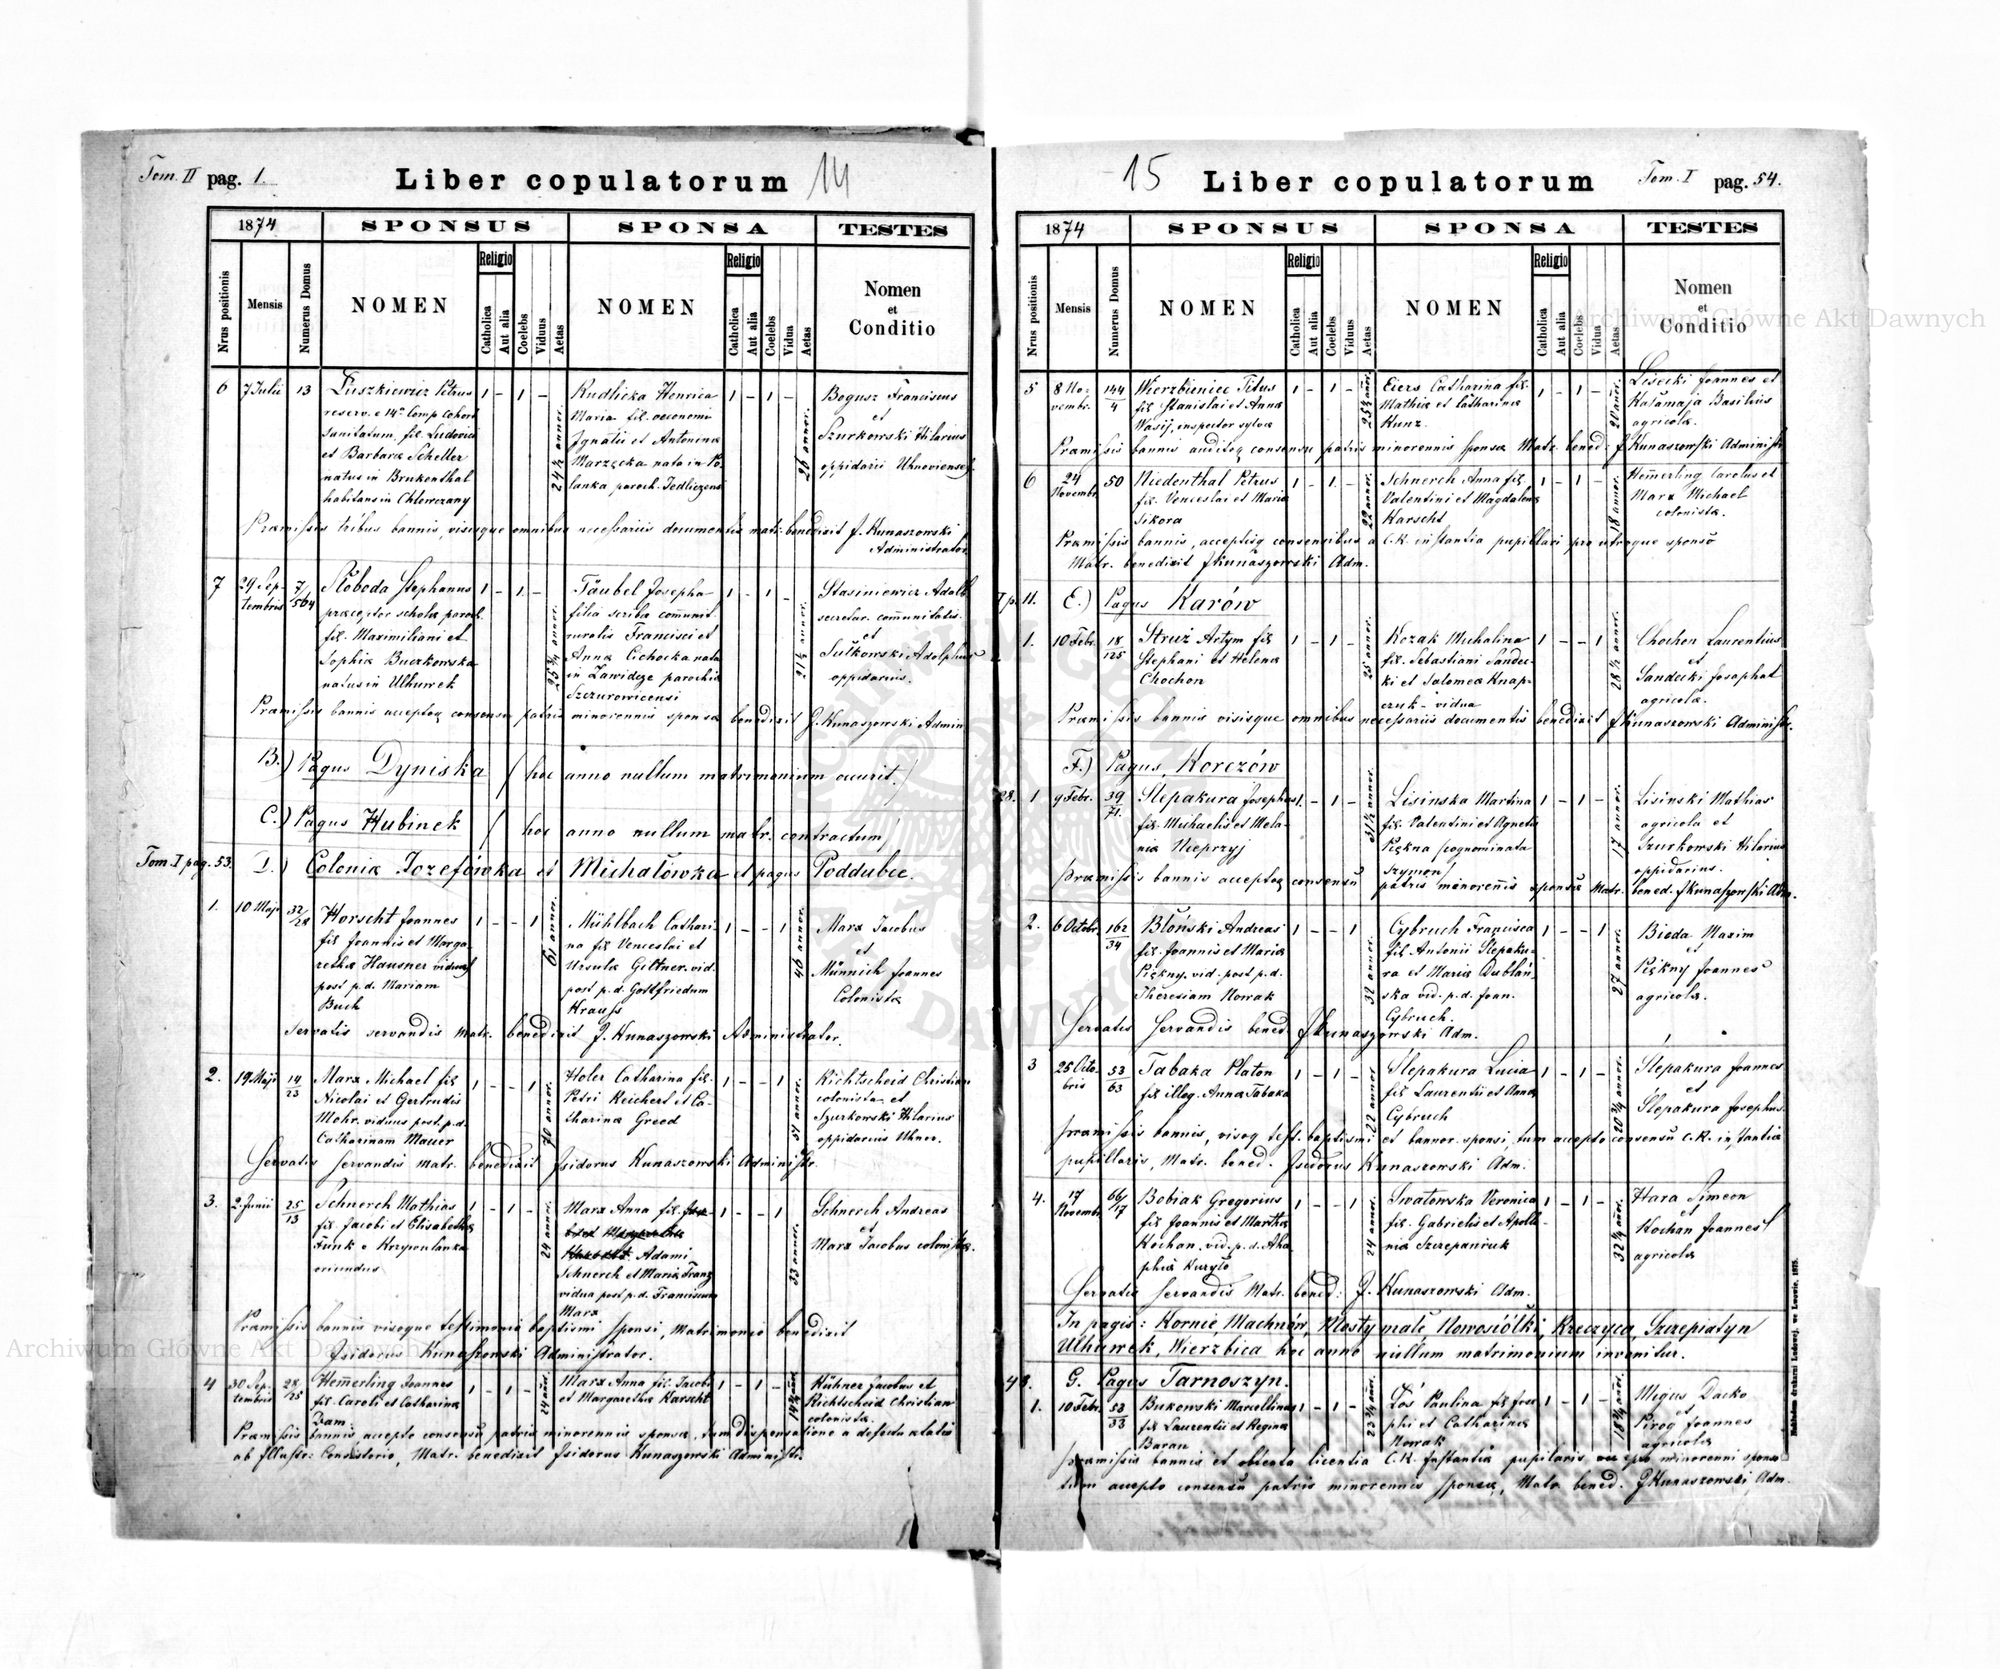 Tom. II pag. 1.
Liber copulatorum 14
1874 SPONSUS SPONSA TESTES
Nrus positionis Mensis Numerus Domus NOMEN Religio Catholica Aut alia Coelebs Viduus Aetas NOMEN Religio Catholica Aut alia Coelebs Vidua Aetas Nomen et Conditio
6 7 Julii 13
Puszkiewicz Petrus
reserv. e 14ta Comp Cohort
Sanitatum, fil. Ludovici
et Barbaræ Scheller
natus in Brukenthal
habitans in Chlewczany
1 - 1 - 24 ½ annor.
Rudlicka Henrica
Maria fil. oeconomi
Ignatii et Antoninæ
Marzęcka nata in Po-
lanka paroch. Jedliczensi
1 - 1 - 26 annor.
Bogusz Franciscus
et
Szurkowski Hilarius
oppidarii Uhnovienses
Præmissis tribus bannis, visisque omnibus necessariis documentis matr. benedixit J. Kunaszowski
Administrator
7 29 Sep-
tembris 7/504
Słoboda Stephanus
præceptor scholæ paroch.
fil. Maximiliani et
Sophiæ Buczkowska
natus in Ulhuwek
1 - 1 - 25 ¾ annor.
Täubel Josepha
filia scribæ communit.
ruralis Francisci et
Annæ Cichocka nata
in Zawidcze parochiæ
Szczurowicensi
1 - 1 - 21 ½ annor.
Stasiniewicz Adalb.
secretar. communitatis
et
Sułkowski Adolphus
oppidarius.
Præmissis bannis acceptoq consensu patris minorennis sponsæ benedixit J. Kunaszowski Admin
B.) Pagus Dyniska (hoc anno nullum matrimonium occurit.)
C.) Pagus Hubinek (hoc anno nullum matr. contractum)
Tom. I pag. 53. D.) Coloniæ Józefówka et Michałówka et pagus Poddubce.
1. 10 Maji 32/28
Horscht Joannes
fil. Joannis et Marga-
rethæ Hausner viduus
post p.d. Mariam
Buch
1 - - 1 61 annor.
Mühlbach Cathari-
na fil. Venceslai et
Ursulæ Giltner. vid.
post p.d. Gottfriedum
Krauss
1 - - 1 46 annor.
Marx Jacobus
et
Münnich Joannes
Colonistæ
Servatis servandis matr. benedixit J. Kunaszowski Administrator.
2. 19 Maji 14/23
Marx Michael fil.
Nicolai et Gertrudis
Mohr. viduus post p.d.
Catharinam Mauer
1 - - 1 70 annor.
Holer Catharina fil.
Petri Reichert et Ca-
tharinæ Greed
1 - - 1 51 annor.
Richtscheid Christian
colonista et
Szurkowski Hilarius
oppidarius Uhnov.
Servatis servandis matr. benedixit Isidorus Kunaszowski Administr.
3. 2. Junii 25/13
Schnerch Mathias
fil. Jacobi et Elisabethæ
Funk e Korzponlanka
oriundus
1 - 1 - 24 annor.
Marx Anna fil.
Adami
Schnerch et Mariæ Franz
vidua post p.d. Franciscum
Marx
1 - - 1 33 annor.
Schnerch Andreas
et
Marx Jacobus colonistæ.
Præmissis bannis visoque testimonio baptismi sponsi, Matrimonio benedixit
Isidorus Kunaszowski Administrator.
4 30 Sep-
tembris 28/25
Hemerling Joannes
fil. Caroli et Catharinæ
Dam
1 - 1 - 24 annor.
Marx Anna fil. Jacobi
et Margarethæ Karscht
1 - 1 -
Kühner Jacobus et
Richtscheid Christian
colonistæ.
Præmissis bannis accepto consensu patris minorennis sponsæ, tum dispensatione a defectu ætatis
ab Illustr: Consistorio, Matr. benedixit Isidorus Kunaszowski Administr.
15 Liber copulatorum Tom. I pag. 54.
1874 SPONSUS SPONSA TESTES
Nrus positionis Mensis Numerus Domus NOMEN Religio Catholica Aut alia Coelebs Viduus Aetas NOMEN Religio Catholica Aut alia Coelebs Vidua Aetas Nomen et Conditio
5 8 No-
vembr. 144/4
Wierzbieniec Titus
fil. Stanislai et Annæ
Wasij, inspector sylvæ
1 - 1 - 25 ½ annor.
Eiers Catharina fil.
Mathiæ et Catharinæ
Kunz.
1 - 1 - 20 annor.
Lisecki Joannes et
Kałamaja Basilius
agricolæ.
Præmissis bannis auditoq consensu patris minorennis sponsæ Matr. bened: J Kunaszowski Administr.
6 24
Novembr. 50
Niedenthal Petrus
fil. Venceslai et Mariæ
Sikora
1 - 1 - 22 annor.
Schnerch Anna fil.
Valentini et Magdalenæ
Karscht
1 - 1 - 18 annor.
Hemerling Carolus et
Marx Michael
colonistæ.
Præmissis bannis, acceptisq consensibus a C.R. instantia pupillari pro utroque sponso
Matr. benedixit J Kunaszowski Adm.
E.) Pagus Karów
1. 10 Febr. 18/125
Struż Artym fil.
Stephani et Helenæ
Chochon
1 - 1 - 25 annor.
Kozak Michalina
fil. Sebastiani Sandec-
ki et Salomeæ Knap-
czuk - vidua
1 - - 1 28 ½ annor.
Chochon Laurentius
et
Sandecki Josaphat
agricolæ.
Præmissis bannis visisque omnibus necessariis documentis benedixit J Kunaszowski Administr.
F.) Pagus Korczów
28. 1 9 Febr. 39/71.
Slepakura Josephus
fil. Michaelis et Mela-
niæ Nieprzyj
1 - 1 - 31 ½ annor.
Lisinska Martina
fil. Valentini et Agnetis
Piękna pognominata
Szymon
1 - 1 - 17 annor.
Lisinski Mathias
agricola et
Szurkowski Hilarius
oppidarius.
Præmissis bannis acceptoq consensu patris minorennis sponsæ Matr. bened. J Kunaszowski Adm.
2. 6 Octobr. 162/34
Błoński Andreas
fil. Joannis et Mariæ
Piękny. vid. post p.d.
Theresiam Nowak
1 - - 1 32 annor.
Cybruch Francisca
fil. Antonii Slepaku-
ra et Mariæ Dublań-
ska vid. p.d. Joan.
Cybruch.
1 - - 1 27 annor.
Bieda Maxim
et
Piękny Joannes
agricolæ.
Servatis servandis bened J Kunaszowski Adm.
3 25 Octo-
bris 53/63
Tabaka Platon
fil. illeg. Annæ Tabaka
1 - 1 - 22 annor
Slepakura Lucia
fil. Laurentii et Annæ
Cybruch
1 - 1 - 20 ¾ annor.
Slepakura Joannes
et
Slepakura Josephus.
præmissis bannis, visoq test. baptismi et bannor. sponsi tum accepto consensu C.R. instantiæ
pupillaris, Matr. bened. Isidorus Kunaszowski Adm.
4. 17
Novembr 66/17
Bobiak Gregorius
fil. Joannis et Marthæ
Kochan. vid. p.d. Aha-
phiæ Kuryło
1 - - 1 24 annor.
Swatowska Veronica
fil. Gabrielis et Apollo-
niæ Szczepaniuk
1 - 1 - 32 ¼ annor.
Hara Simeon
et
Kochan Joannes
agricolæ
Servatis servandis Matr. bened: J. Kunaszowski Adm.
In pagis: Kornie, Machnów, Mosty małe Nowosiółki, Krzczyca, Szczepiatyn
Ulhuwek, Wierzbica hoc anno nullum matrimonium invenitur.
48. G. Pagus Tarnoszyn.
1. 10 Febr. 53/33
Bukowski Marcellinus
fil. Laurentii et Reginæ
Baran
1 - 1 - 23 ¾ annor.
Łoś Paulina fil. Jose-
phi et Catharinæ
Nowak
1 - 1 - 18 ¾ annor.
Migus Dacko
et
Pirog Joannes
agricolæ
præmissis bannis et obtenta licentia C.R. Instantiæ pupilaris pro minorenni sponso
tum accepto consensu patris minorennis sponsæ, Matr. bened. J Kunaszowski Adm.
Nakładem drukarni Ludowej, we Lwowie, 1875.
Archiwum Główne Akt Dawnych
Archiwum Główne Akt Dawnych
ARCHIWUM GŁÓWNE AKT DAWNYCH